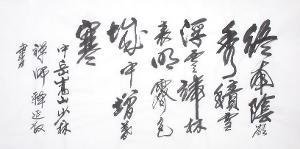 终南陰嶺
秀積雪
浮雲端林
表明霽色
城中增暮
寒
中岳嵩山少林
禅师釋延
書